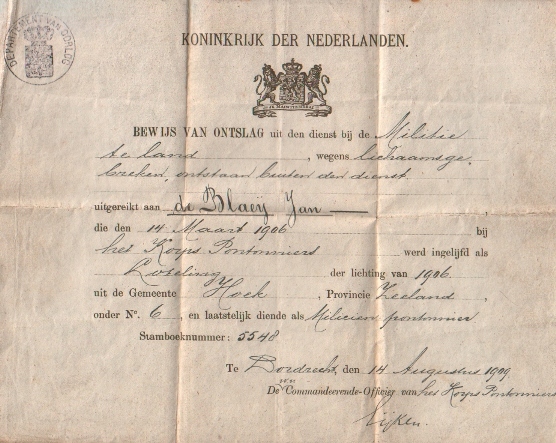 DEPARTEMENT VAN OORLOG
KONINKRIJK DER NEDERLANDEN.
JE MAINTIENDRAI
BEWIJS VAN ONTSLAG uit den dienst bij de Militie
te land, wegens lichaamsge-
breken, ontstaan buiten den dienst.
uitgereikt aan de Blaeij Jan,
die den 14 Maart 1906 bij
het Korps Pontonniers werd ingelijfd als
Loteling der lichting van 1906
uit de Gemeente Hoek, Provincie Zeeland,
onder No. 6, en laatstelijk diende als Milicien pontonnier
Stamboeknummer: 5548
Te Dordrecht, den 14 Augustus 1909
De Commandeerende-Officier van het Korps Pontonniers